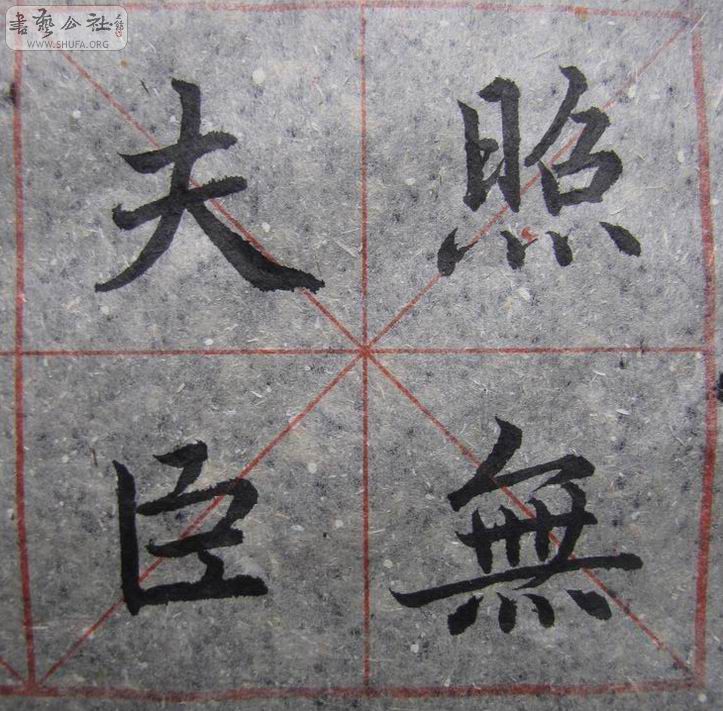 照無
夫臣
書藝公社
WWW.SHUFA.ORG